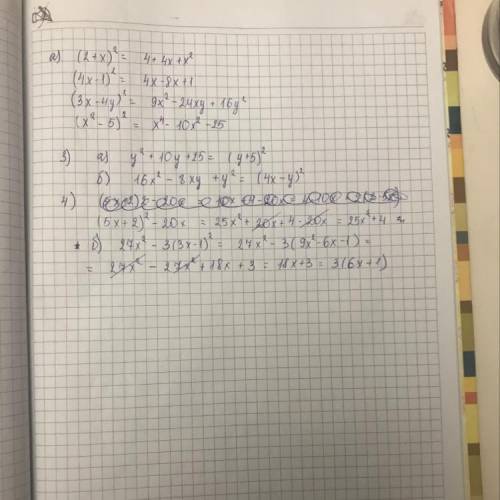 а) (2+x)² = 4+4x+x²
(4x-1)² = 4x-8x+1
(3x-4y)² = 9x²-24xy+16y²
(x²-5)² = x⁴-10x²-25
3) а) y²+10y+25 = (y+5)²
б) 16x²-8xy+y² = (4x-y)²
4)
(5x+2)²-20x = 25x²+20x+4-20x = 25x²+4
б) 27x²-3(3x-1)² = 27x²-3(9x²-6x-1) =
= 27x²-27x²+18x+3 = 18x+3 = 3(6x+1)